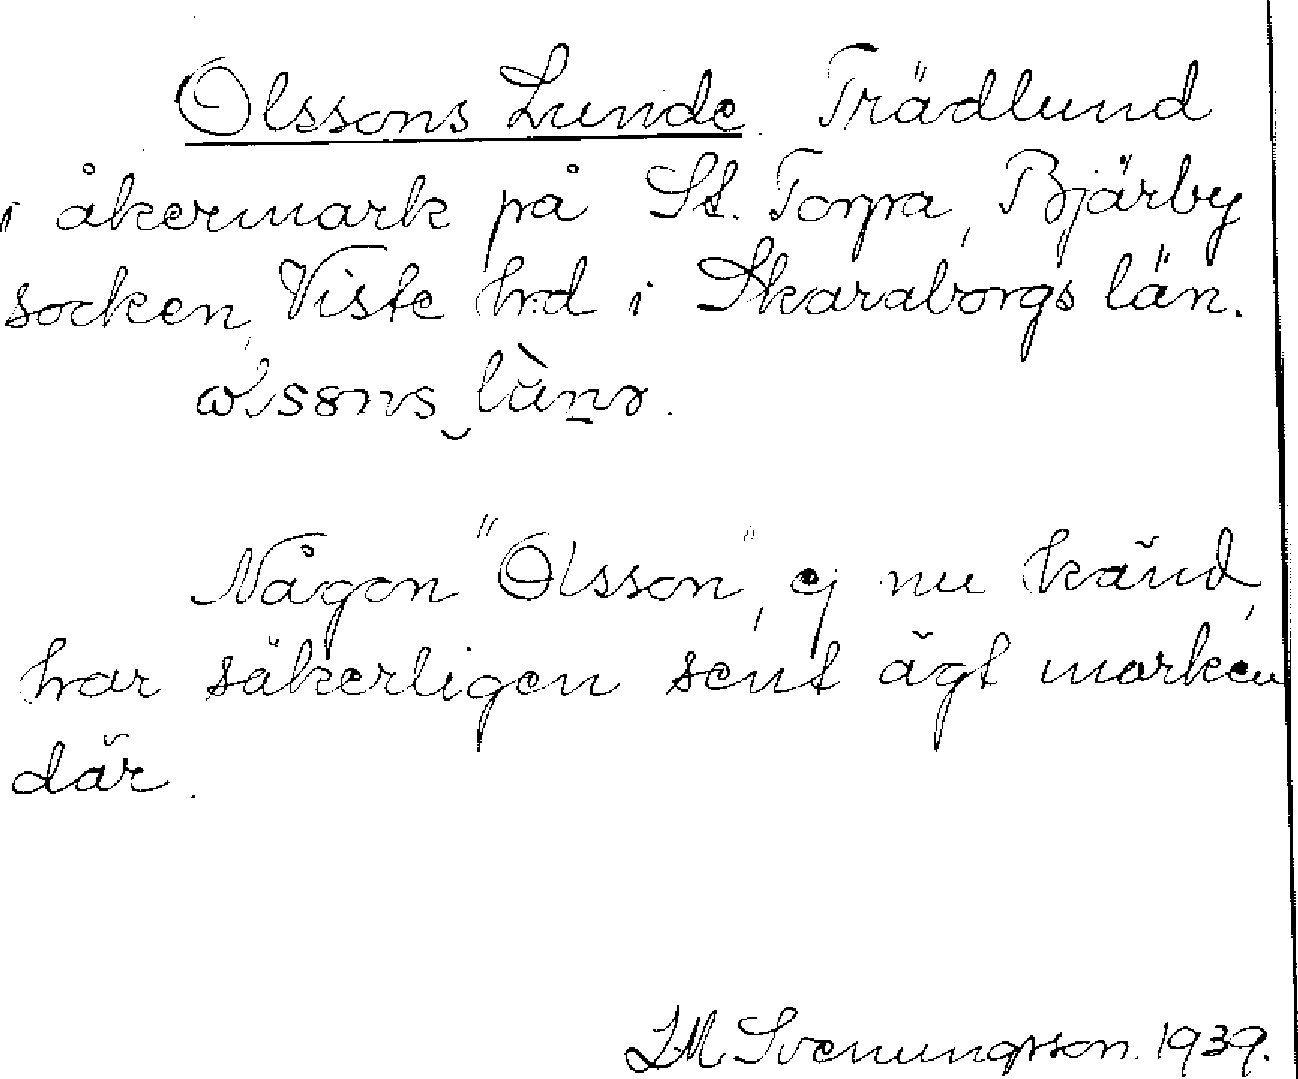 Olssons Lunde. Trädlund
i åkermark på St. Torpa, Bjärby
socken, Viste hd i Skaraborgs län.
Någon "Olsson", ej nu känd,
har säkerligen sent ägt marken
där.
J M Svenungsson. 1939.